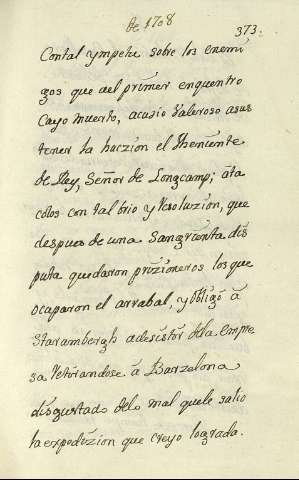 de 1708
373.
Contal ympetu sobre los enemi
gos que ael primer enquentro
Cayo muerto, acudio Valeroso asus
tener la haczion el Theniente
de Rey, Señor de Longcamp; áta
colos con tal brio y Resoluzion, que
despues de una Sangrienta dis
puta quedaron prizioneros los que
ocaparon el arrabal, y obligó á
Starambergh adesistir dela Empre
sa Retirandose á Barzelona
disgustado delo mal quele salio
la expedizion que creyo lograda.